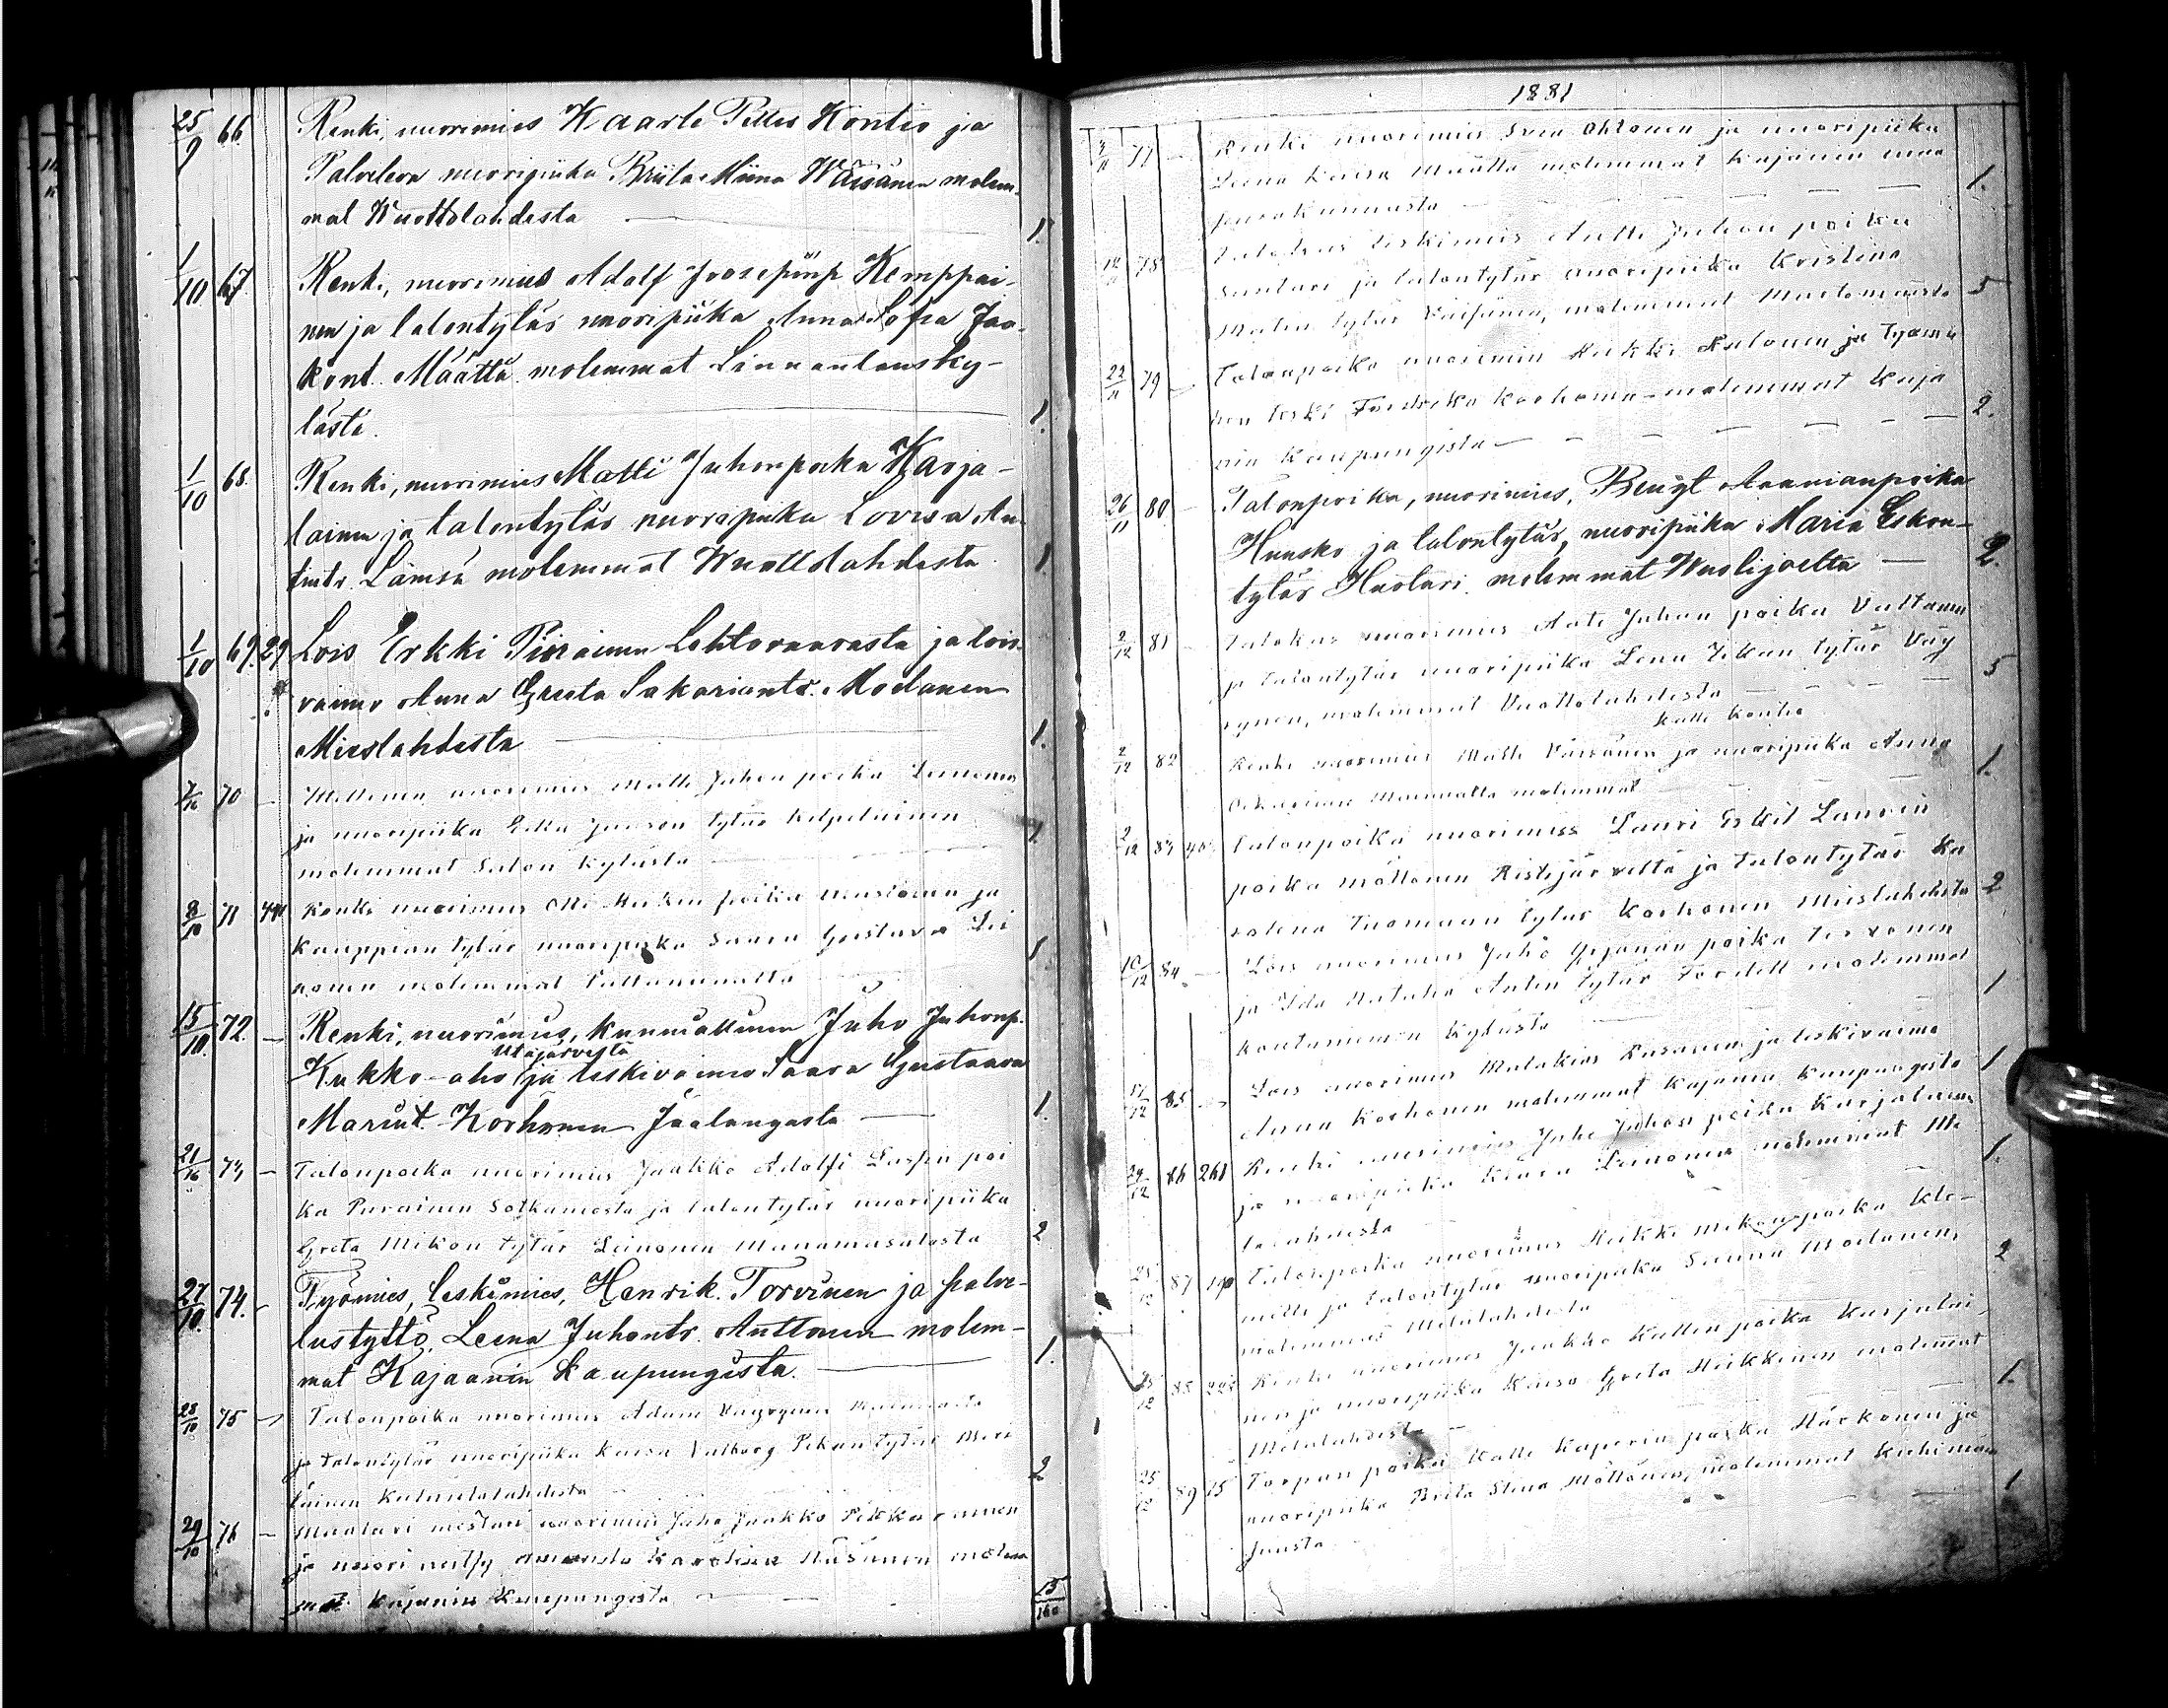 25/9 66. Renki, nuorimies Kaarle Petter Kontio ja
Palveleva nuoripiika Briita Miina Wäisänen molem-
mat Wuottolahdesta 1.
1/10 67. Renki, nuorimies Adolf Joosepinp Kemppai-
nen ja talontytär nuoripiika Anna Sofia Jaa-
kont. Määttä molemmat Linnantausky-
lästä. 1.
1/10 68. Renki, nuorimies Matti Juhonpoika Karja-
lainen ja talontytär nuoripiika Lovisa An-
tintr. Lämsä molemmat Wuottolahdesta 1
1/10 69. 29 Lois Erkki Piirainen Lehtovaarasta ja lois-
vaimo Anna Greeta Sakariantr. Moilanen
Mieslahdesta 1.
7/10 70 nuorimies Matti Juhon poika Leinonen
ja nuoripiika tytär Kilpeläinen
molemmat Salon kylästä 1
8/10 71 Renki nuorimies Olli Heikin poika Mustonen ja
kauppian tytär nuoripiika Saara Gustava Lei
nonen molemmat Paltaniemeltä 1
15/10. 72. Renki, nuorimies, Juho Juhonp.
Utajärvestä
Kukko-aho ja leskivaimo Saara Gustaava
Mariat. Korhonen Jaalangasta 1.
21/10 73 Talonpoika nuorimies Jaakko Adolfi Laspin poi
ka Piirainen Sotkamosta ja talontytär nuoripiika
Greta Mikon tytär Leinonen Manamasalosta 2
27/10. 74. Työmies, leskimies, Henrik Torvinen ja palve-
lustyttö, Leena Juhontr. Anttonen molem-
mat Kajaanin kaupungista. 1.
28/10 75 Talonpoika nuorimies Adam Väyrynen
ja talontytär nuoripiika Kaisa Valborg Pekan tytär Meri
läinen 2
29/10 76 Maalari mestari nuorimies Juho Jaakko Pikkarainen
ja nuori neitsy Amanda Karolina Häsänen molem
mat Kajanin kaupungista
15/160
1881
77 Renki nuorimies Sven Ohtonen ja nuoripiika
Leena Kaisa Määttä molemmat Kajanin maa
seurakunnasta 1.
78 leskimies Antti Juhon poika
ja talontytär nuoripiika Kristina
Matin tytär Väisänen, molemmat 5
22/11 79 Talonpoika nuorimies Heikki ja työmie
hen leski Fredrika Korhonen molemmat Kaja
nin kaupungista 2.
26/11 80 Talonpoika, nuorimies, Bengt Aaronianpoika
Huusko ja talontytär, nuoripiika Maria Eskon-
tytär Huotari molemmat Wuolijoelta 2.
2/12 81 nuorimies Anti Juhon poika Valtanen
ja talontytär nuoripiika Lena Pekan tytär Väy
rynen, molemmat Vuottolahdesta 5
Kalle Kontio
2/12 82 Renki nuorimies Matti Väisänen ja nuoripiika Anna
molemmat 1.
2/12 83 Talonpoika nuorimies Lauri Eskil Laurin
poika Möttönen Ristijärveltä ja talontytär Ka
talena Tuomaan tytär Korhonen Mieslahdesta 2
10/12 84 Lois nuorimies Juho Yrjänän poika Tervonen
ja Ida Natalia Antin tytär Tordell molemmat
Kontiomäen kylästä 1
17/12 85 Lois nuorimies Malakias Rusanen ja leskivaimo
Anna Korhonen molemmat Kajanin kaupungista 1
24/12 86 261 Renki nuorimies Juho Juhon poika Karjalainen
ja nuoripiika Leinonen molemmat Me
lalahdesta 1.
25/12 87 Talonpoika nuorimies Heikki Mikonpoika Kle-
metti ja talontytär nuoripiika Sanna Moilanen,
molemmat Melalahdesta 2
25/12 88 Renki nuorimies Jaakko Kallen poika Karjalai
nen ja nuoripiika Kaisa Greta Heikkinen molemmat
Melalahdesta 1.
25/12 89 15 Torpan poika Kalle Kasperin poika Härkönen ja
nuoripiika Brita Stina Möttönen, molemmat Kuhmon
1